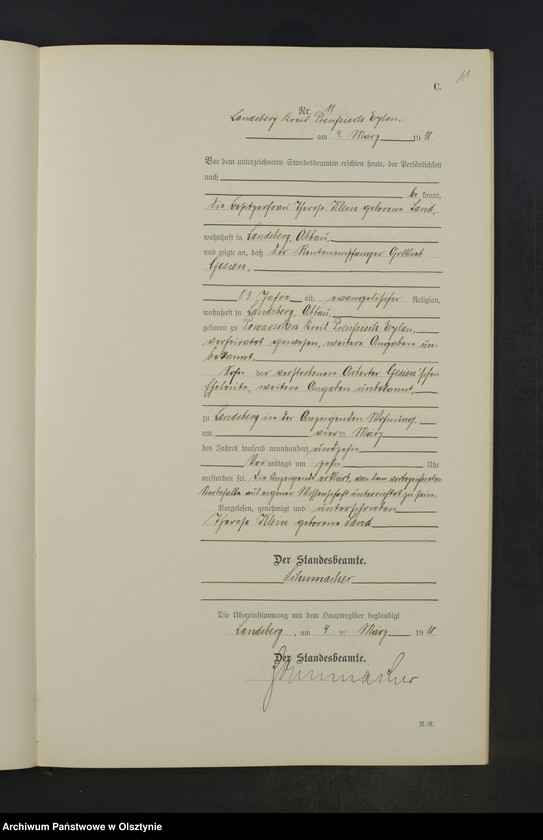 11
C.
Nr. 11
Landsberg Kreis Preußisch Eylau.
am 4. März 1918
Vor dem unterzeichneten Standesbeamten erschien heute, der Persönlichkeit
nach
be kannt,
die Besitzerfrau Therese Klein geborene Land,
wohnhaft in Landsberg, Abbau,
und zeigte an, daß der Rentenempfänger Gottlieb
83 Jahre alt, evangelischer Religion,
wohnhaft in Landsberg, Abbau,
geboren zu Kreis Preußisch Eylau,
verheiratet gewesen, weitere Angaben un-
bekannt,
Sohn der verstorbenen Arbeiter schen
Eheleute, weitere Angaben unbekannt,
zu Landsberg in der Anzeigenden Wohnung,
am vierten März
des Jahres tausend neunhundert
Vor mittags um zehn Uhr
verstorben sei. Die Anzeigende erklärt, von dem vorbezeichneten
Sterbefalle aus eigener Wissenschaft unterrichtet zu sein.
Vorgelesen, genehmigt und unterschrieben
Therese Klein geborene Land
Der Standesbeamte.
Schumacher
Die Übereinstimmung mit dem Hauptregister beglaubigt
Landsberg, am 4 ten März 1918
Der Standesbeamte.
Schumacher
R.-S.
Archiwum Państwowe w Olsztynie